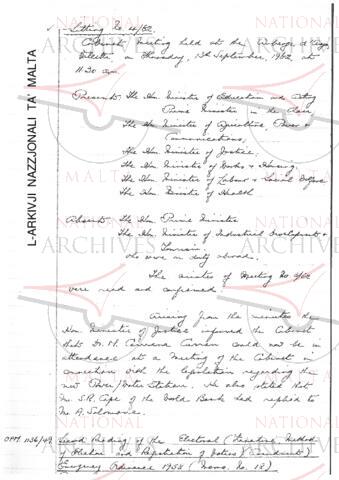 L-ARKIVJI NAZZJONALI TA' MALTA
Sitting No 4/62
Cabinet Meeting held at the Auberge d'Aragon,
Valletta, on Thursday, 13th September, 1962, at
11.30 a.m.
Present: The Hon. Minister of Education and Acting
Prime Minister in the Chair
The Hon. Minister of Agriculture, Power &
Communications,
The Hon. Minister of Justice.
The Hon. Minister of Works & Housing.
The Hon. Minister of Labour & Social Welfare
The Hon. Minister of Health
Absent: The Hon. Prime Minister
The Hon. Minister of Industrial Development &
Tourism.
who were on duty abroad.
The minutes of Meeting No 3/62
were read and confirmed.
Arising from the minutes the
Hon. Minister of Justice informed the Cabinet
that Dr. could now be in
attendance at a meeting of the Cabinet in
connection with the legislation regarding the
new Power/Water Station. He also stated that
Mr. S.R. Cope of the World Bank had replied to
Mr. A. Salomone.
OPM 1136/49 Second Reading of the Electoral ( Method
of Election and Registration of Voters) (Amendment)
Emergency Ordinance 1958 (Memo. No. 18)
NATIONAL
ARCHIVES
MALTA